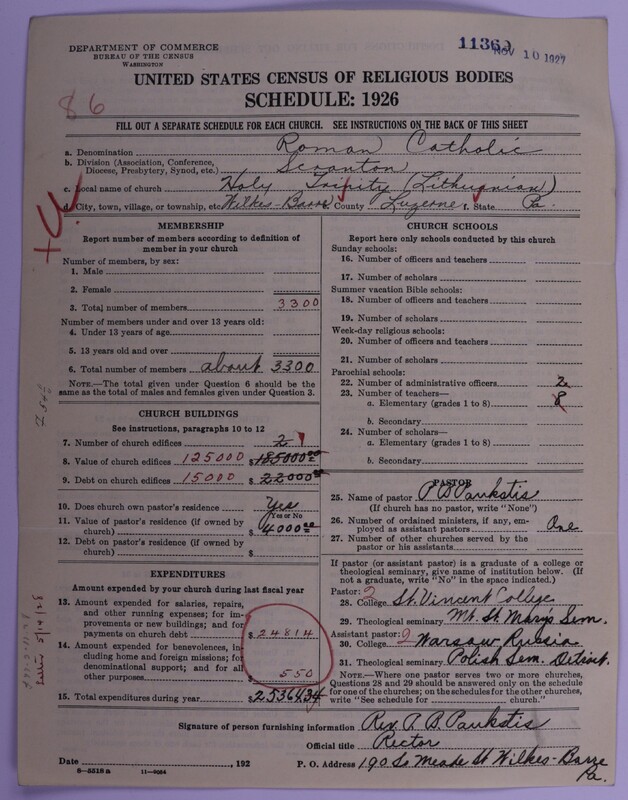 DEPARTMENT OF COMMERCE
BUREAU OF THE CENSUS
WASHINGTON
11360
NOV 10 1927
UNITED STATES CENSUS OF RELIGIOUS BODIES
SCHEDULE: 1926
86
FILL OUT A SEPARATE SCHEDULE FOR EACH CHURCH. SEE INSTRUCTIONS ON THE BACK OF THIS SHEET
a. Denomination Roman Catholic
b. Division (Association, Conference, Diocese, Presbytery, Synod, etc.) Scranton
c. Local name of church Holy Trinity (Lithuanian)
d. City, town, village, or township, etc. Wilkes-Barre County Luzerne f. State Pa.
MEMBERSHIP
Report number of members according to definition of member in your church
Number of members, by sex:
1. Male
2. Female
3. Total number of members 3300
Number of members under and over 13 years old:
4. Under 13 years of age
5. 13 years old and over
6. Total number of members about 3300
NOTE.—The total given under Question 6 should be the same as the total of males and females given under Question 3.
CHURCH BUILDINGS
See instructions, paragraphs 10 to 12
7. Number of church edifices 2 1
8. Value of church edifices 125000 $ 185000.00
9. Debt on church edifices 15000 $ 22000.00
10. Does church own pastor's residence Yes
(Yes or No)
11. Value of pastor's residence (if owned by church) $ 4000.00
12. Debt on pastor's residence (if owned by church) $
EXPENDITURES
Amount expended by your church during last fiscal year
13. Amount expended for salaries, repairs, and other running expenses; for improvements or new buildings; and for payments on church debt $ 24814
14. Amount expended for benevolences, including home and foreign missions; for denominational support; and for all other purposes $ 550
15. Total expenditures during year $ 25364.34
CHURCH SCHOOLS
Report here only schools conducted by this church
Sunday schools:
16. Number of officers and teachers
17. Number of scholars
Summer vacation Bible schools:
18. Number of officers and teachers
19. Number of scholars
Week-day religious schools:
20. Number of officers and teachers
21. Number of scholars
Parochial schools:
22. Number of administrative officers 2
23. Number of teachers—
a. Elementary (grades 1 to 8) 8
b. Secondary
24. Number of scholars—
a. Elementary (grades 1 to 8)
b. Secondary
PASTOR
25. Name of pastor P B Paukstis
(If church has no pastor, write "None")
26. Number of ordained ministers, if any, employed as assistant pastors One
27. Number of other churches served by the pastor or his assistants
If pastor (or assistant pastor) is a graduate of a college or theological seminary, give name of institution below. (If not a graduate, write "No" in the space indicated.)
Pastor: 2
28. College St. Vincent College
29. Theological seminary Mt. St. Marys Sem.
Assistant pastor: 2
30. College Warsaw Russia
31. Theological seminary Polish Sem. Detroit
NOTE.—Where one pastor serves two or more churches, Questions 28 and 29 should be answered only on the schedule for one of the churches; on the schedules for the other churches, write "See schedule for church."
Signature of person furnishing information Rev. P. B. Paukstis
Official title Rector
Date , 192
P. O. Address 190 So Meade St Wilkes-Barre Pa.
8—5518 a 11—9084
Letter 5/14/28